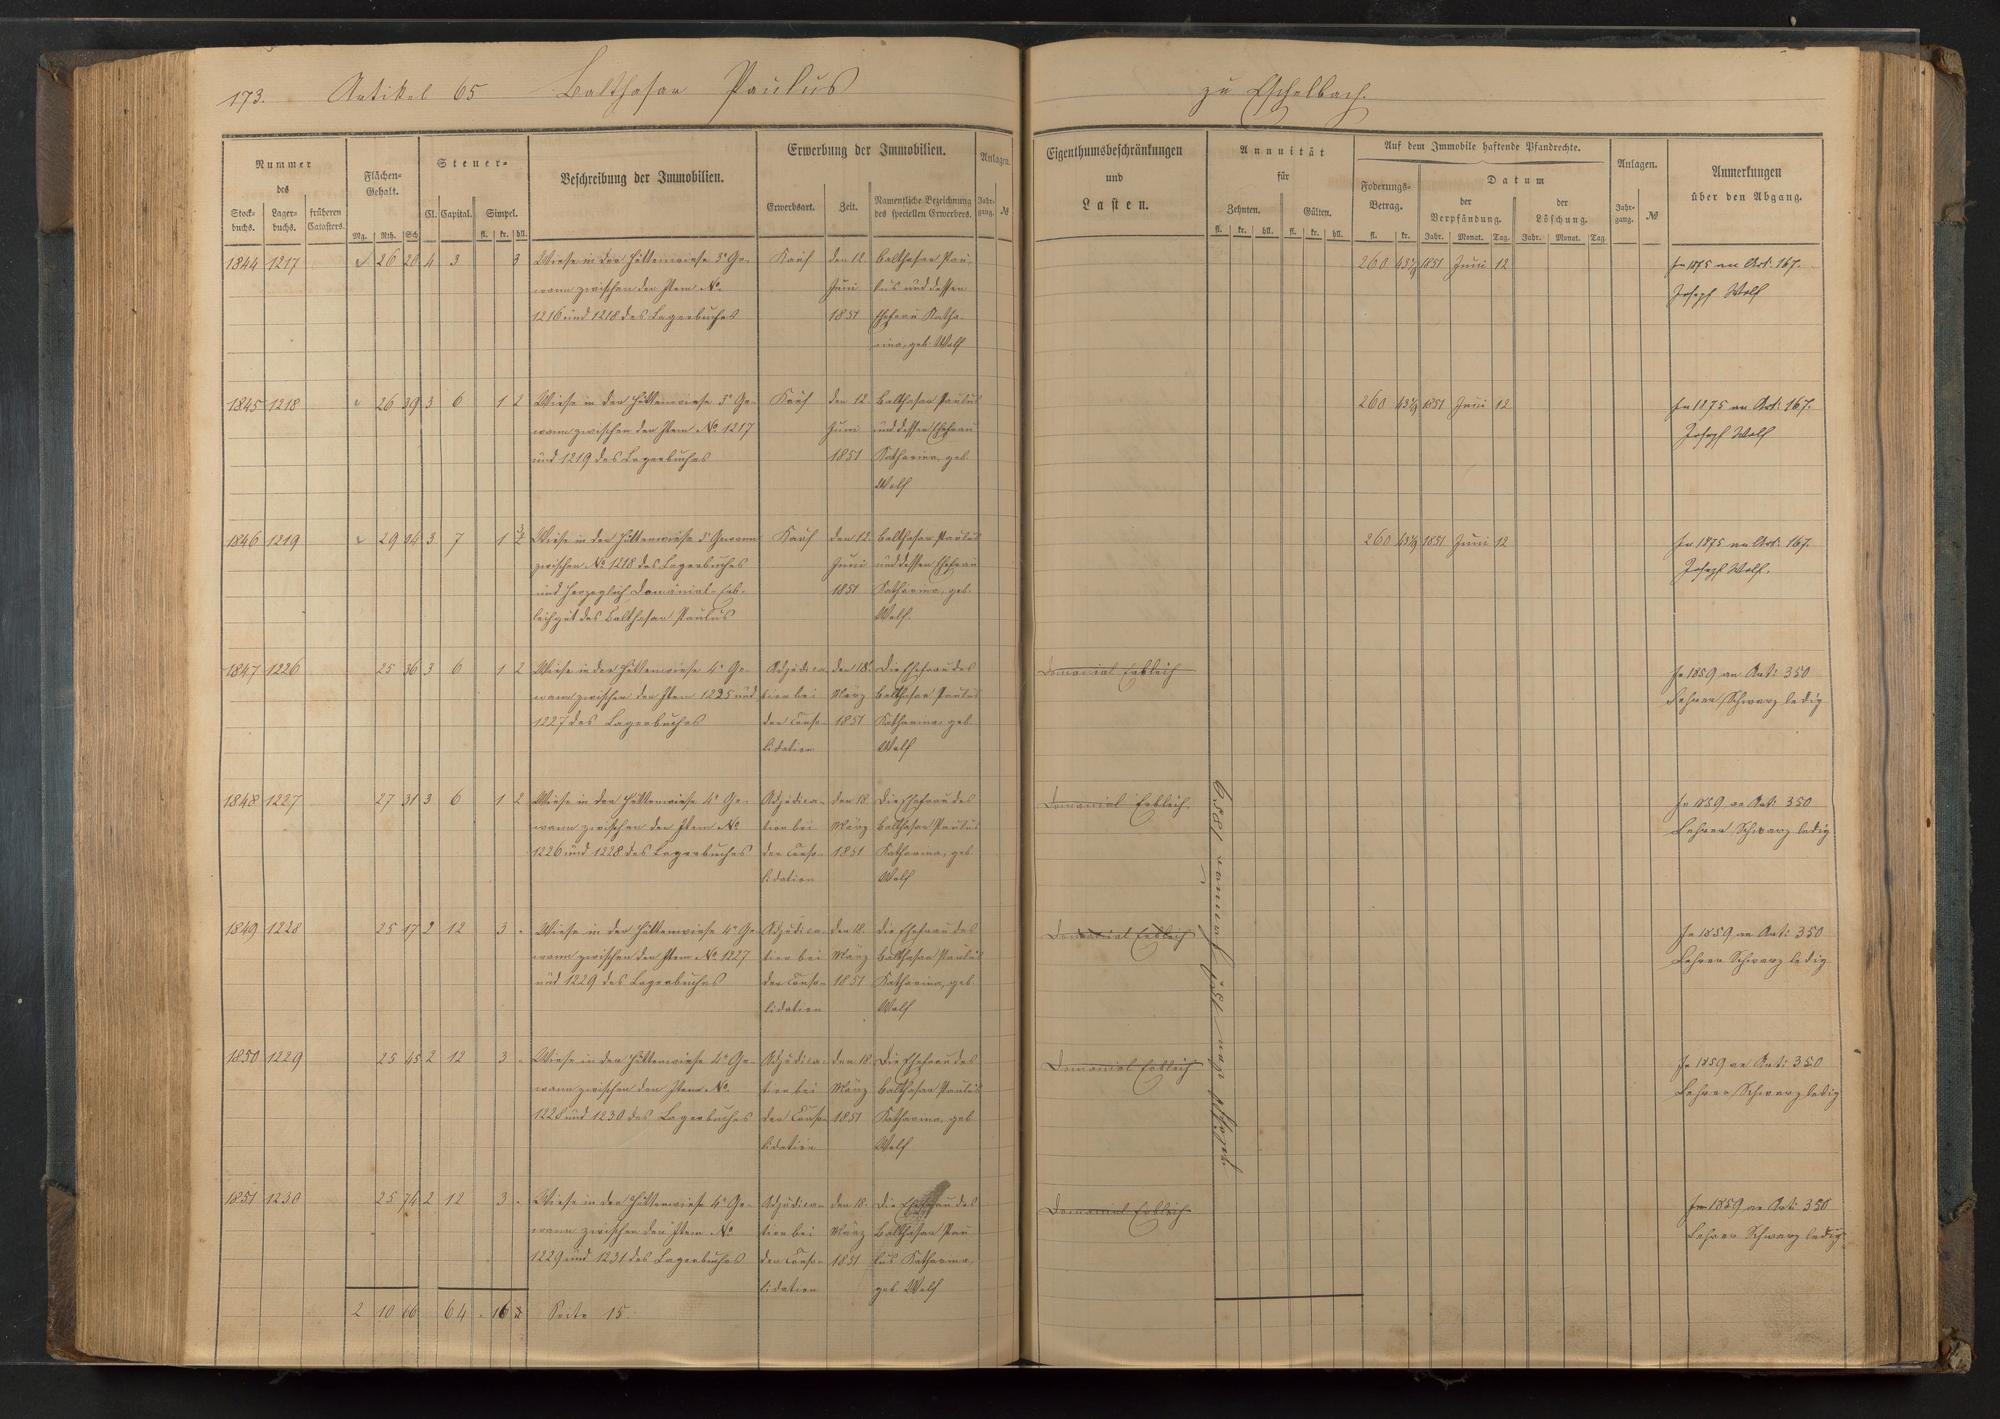 173. Artikel 65 Balthasar Paulus zu Eschelbach.
Nummer des
Stock-buchs. Lager-buchs. früheren Catasters.
Flächen-Gehalt.
Mg. Rth. Sch
Steuer-
Cl. Capital. Simpel.
fl. kr. hll.
Beschreibung der Immobilien.
Erwerbung der Immobilien.
Erwerbsart. Zeit. Namentliche Bezeichnung des speciellen Erwerbers.
Anlagen.
Jahr-gang. №
Eigenthumsbeschränkungen
und
Lasten.
Annuität
für
Zehnten. Gülten.
fl. kr. hll. fl. kr. hll.
Auf dem Immobile haftende Pfandrechte.
Foderungs-Betrag.
fl. kr.
Datum
der Verpfändung. der Löschung.
Jahr. Monat. Tag. Jahr. Monat. Tag.
Anlagen.
Jahr-gang. №
Anmerkungen
über den Abgang.
1844 1217 26 20 4 3 3 Wiese in der Hüttenwiese 3e Ge- Kauf den 12 Balthasar Pau- 260 1851 Juni 12 In 1875 an Art. 167.
wann zwischen den Item No. Juni lus und dessen Joseph Wolf
1216 und 1218 des Lagerbuches 1851 Ehefrau Katha-
rina, geb. Wolf
1845 1218 26 39 3 6 1 2 Wiese in der Hüttenwiese 3e Ge- Kauf den 12. Balthasar Paulus 260 1851 Juni 12 In 1875 an Art. 167.
wann zwischen den Item No. 1217 Juni und dessen Ehefrau Joseph Wolf
und 1219 des Lagerbuches 1851 Katharina, geb.
Wolf
1846 1219 29 04 3 7 1 Wiese in der Hüttenwiese 3e Gewann Kauf den 12. Balthasar Paulus 260 1851 Juni 12 In 1875 an Art. 167.
zwischen No. 1218 des Lagerbuches Juni und dessen Ehefrau Joseph Wolf.
und Herzoglich Domänial-Erb- 1851 Katharina, geb.
leihgut des Balthasar Paulus Wolf.
1847 1226 25 36 3 6 1 2 Wiese in der Hüttenwiese 4e Ge- Adjudica- den 18. Die Ehefrau des Domanial Erbleih In 1859 an Art. 350
wann zwischen den Item 1225 und tion bei März Balthasar Paulus Lehrer Schwarz ledig
1227 des Lagerbuches der Conso- 1851 Katharina, geb.
lidation Wolf
1848 1227 27 31 3 6 1 2 Wiese in der Hüttenwiese 4e Ge- Adjudica- den 18. Die Ehefrau des Domanial Erbleih. In 1859 an Art. 350
wann zwischen den Item No tion bei März Balthasar Paulus Lehrer Schwarz ledig
1226 und 1228 des Lagerbuches der Conso- 1851 Katharina, geb.
lidation Wolf
1849 1228 25 17 2 12 3 - Wiese in der Hüttenwiese 4e Ge- Adjudica- den 18. Die Ehefrau des Domanial Erbleih In 1859 an Art. 350
wann zwischen den Item No. 1227 tion bei März Balthasar Paulus Lehrer Schwarz ledig
und 1229 des Lagerbuches der Conso- 1851 Katharina, geb.
lidation Wolf
1850 1229 25 45 2 12 3 - Wiese in der Hüttenwiese 4e Ge- Adjudica- den 18. Die Ehefrau des Domanial Erbleih In 1859 an Art. 350
wann zwischen den Item No. tion bei März Balthasar Paulus Lehrer Schwarz ledig
1228 und 1230 des Lagerbuches der Conso- 1851 Katharina, geb.
lidation Wolf
1851 1230 25 74 2 12 3 - Wiese in der Hüttenwiese 4e Ge- Adjudica- den 18. Die Ehefrau des Domanial Erbleih In 1859 an Art. 350
wann zwischen den Item No. tion bei März Balthasar Pau- Lehrer Schwarz ledig
1229 und 1231 des Lagerbuches der Conso- 1851 lus Katharina,
lidation geb. Wolf
2 10 66 64 - 16 Seite 15.